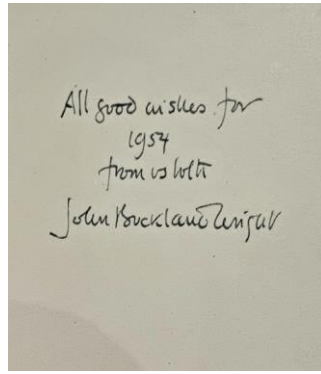 All good wishes for
1954
from us both
John Buckland Wright